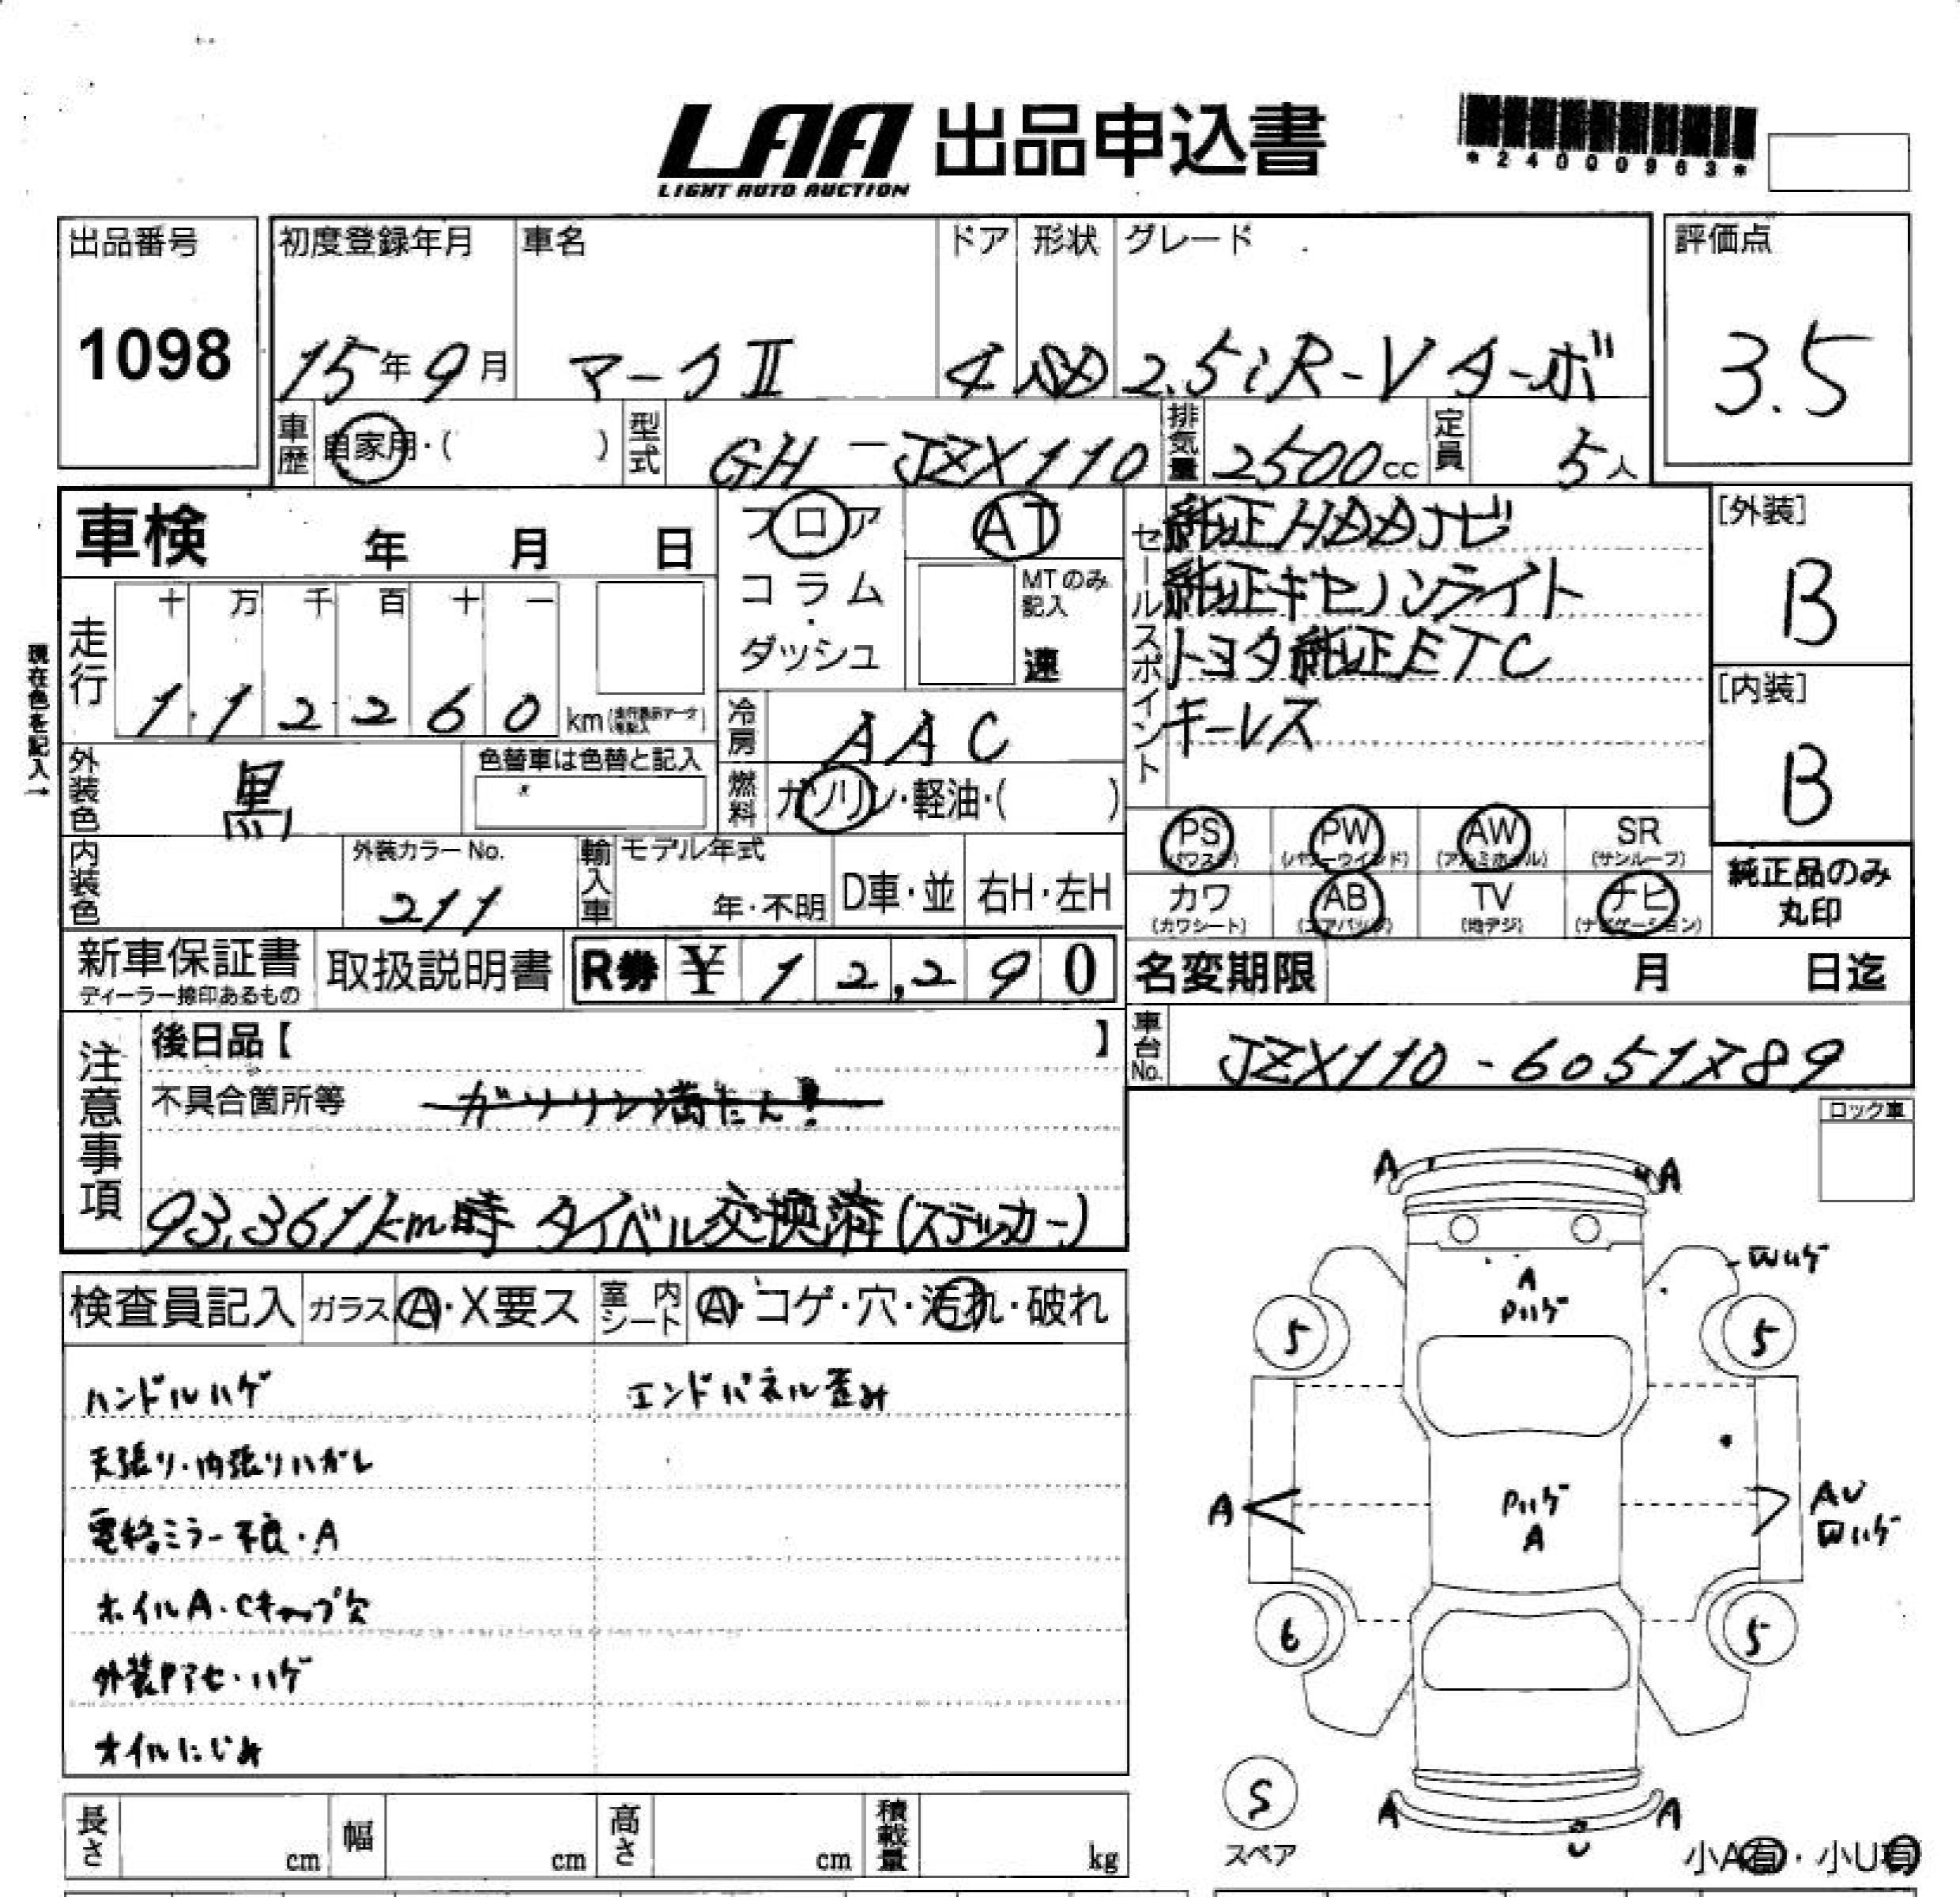 LAA 出品申込書
LIGHT AUTO AUCTION
*24000963*
出品番号
1098
初度登録年月
15年9月
車名
マークⅡ
ドア
4
形状
SD
グレード
2.5iR-Vターボ
評価点
3.5
車歴
自家用・( )
型式
GH-JZX110
排気量
2500cc
定員
5人
車検 年 月 日
フロア
コラム
・
ダッシュ
AT
MTのみ
記入
速
セールスポイント
純正HDDナビ
純正キセノンライト
トヨタ純正ETC
キーレス
[外装]
B
[内装]
B
現在色を記入→
走行
十 万 千 百 十 一
112260 km
冷房
AAC
外装色
黒
色替車は色替と記入
燃料
ガソリン・軽油・( )
内装色
外装カラーNo.
211
輸入車
モデル年式
年・不明
D車・並
右H・左H
PS
(パワステ)
PW
(パワーウインド)
AW
(アルミホイル)
SR
(サンルーフ)
カワ
(カワシート)
AB
(エアバック)
TV
(地デジ)
ナビ
(ナビゲーション)
純正品のみ
丸印
新車保証書
ディーラー捺印あるもの
取扱説明書
R券 ¥12,290
名変期限 月 日迄
注意事項
後日品【 】
不具合箇所等
ガソリン満たん!
93,361km時 タイベル交換済(ステッカー)
車台No.
JZX110-6051789
ロック車
検査員記入
ガラス
A・X要ス
室内シート
A・コゲ・穴・汚れ・破れ
ハンドルハゲ
エンドパネル歪み
天張り・内張りハガレ
電格ミラー不良・A
ホイルA・Cキャップ欠
外装Pアセ・ハゲ
オイルにじみ
A A
Wハゲ
A
Pハゲ
5 5
Pハゲ
A
A
AU
Wハゲ
6 5
S
スペア
A A
U
小A有・小U有
長さ cm
幅 cm
高さ cm
積載量 kg